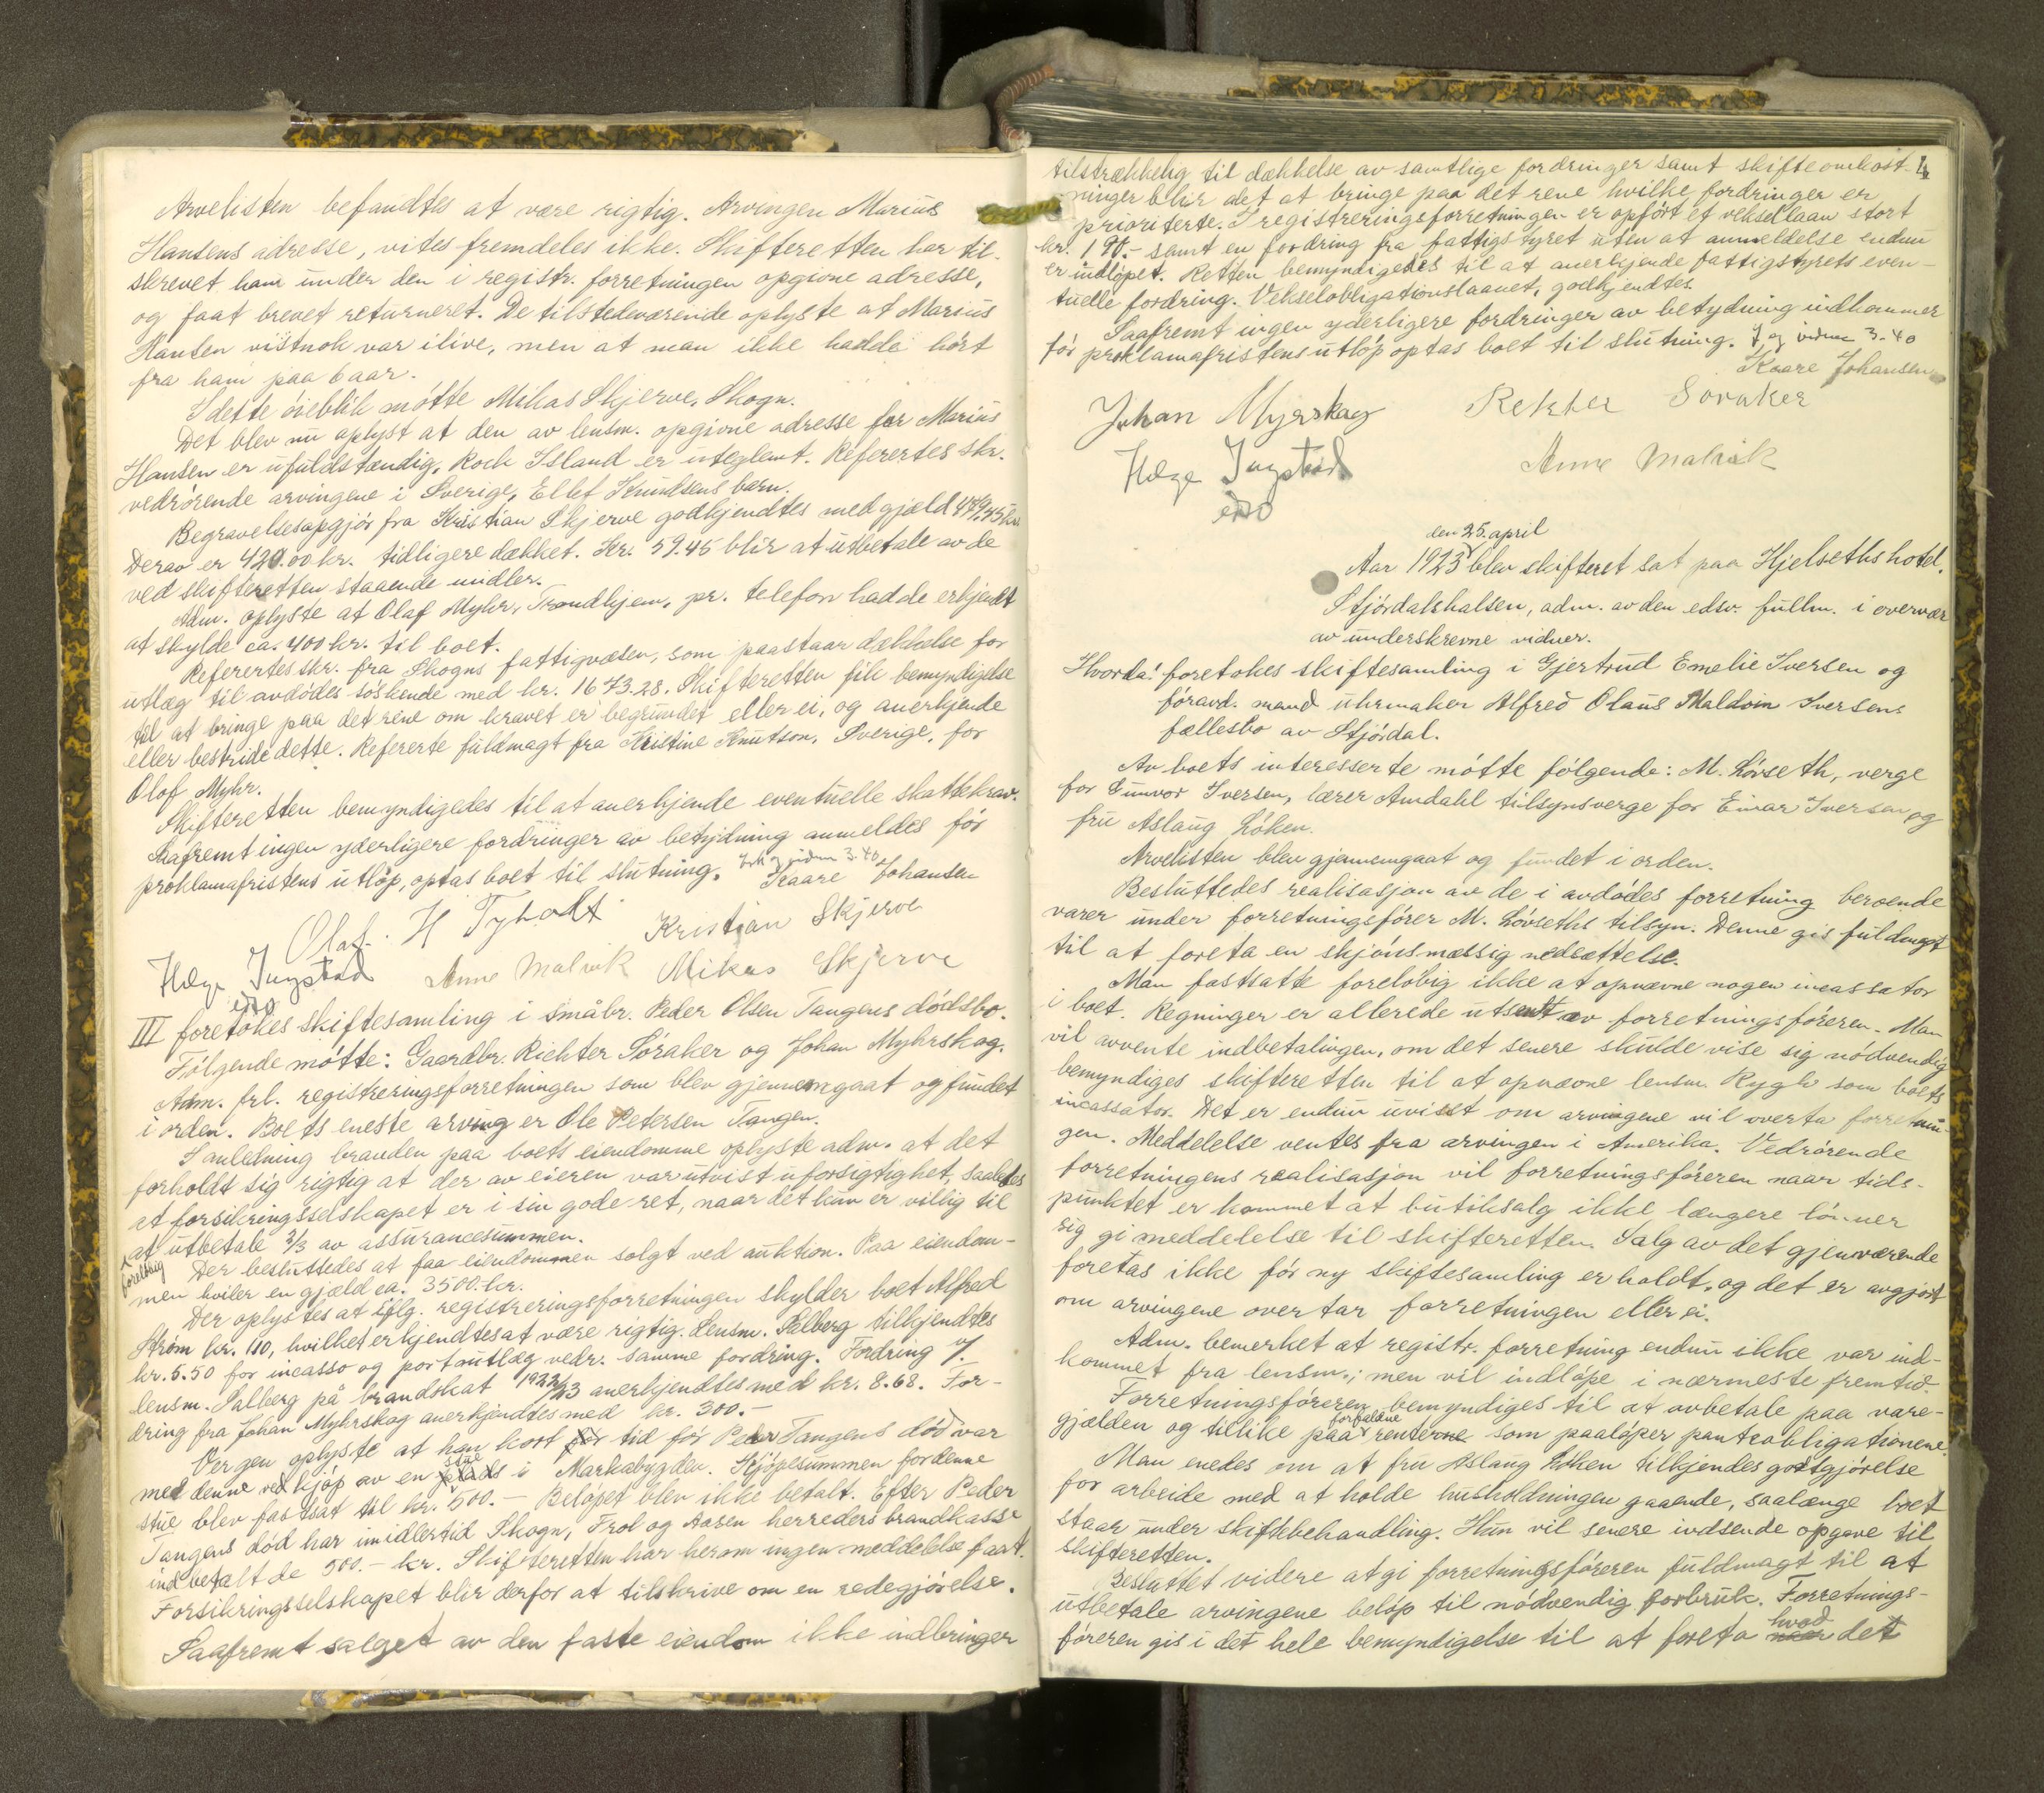 Arvelisten befandtes at være rigtig. Arvingen Marius
Hansens adresse, vites fremdeles ikke. Skifteretten har til-
skrevet ham under den i registr. forretningen opgivne adresse,
og faat brevet returneret. De tilstedeværende oplyste at Marius
Hansen vistnok var ilive, men at man ikke hadde hørt
fra ham paa 6 aar.
I dette øieblik møtte Mikas Skjerve, Skogn.
Det blev nu oplyst at den av lensm. opgivne adresse for Marius
Hansen er ufuldstændig, Rock Island er uteglemt. Refertes skr.
vedrørende arvingene i Sverige, Ellef Knudsens barn.
Begravelsesopgjør fra Kristian Skjerve godkjendtes med gjæld 479,45 kr.
Derav er 420.00 kr. tidligere dækket. Kr. 59.45 blir at utbetale av de
ved skifteretten staaende midler.
Adm. oplyste at Olaf Myhr, Trondhjem, pr. telefon hadde erkjendt
at skylde ca. 400 kr. til boet.
Refertes skr. fra Skogns fattigvæsen, som paastaar dækkelse for
utlæg til avdødes søskende med kr. 1673.28. Skifteretten fik bemyndigelse
til at bringe paa det rene om kravet er begrundet eller ei, og anerkjende
eller bestride dette. Referte fuldmagt fra Kristine Knutson, Sverige, for
Olof Myhr.
Skifteretten bemyndigedes til at anerkjende eventuelle skattekrav.
Saafremt ingen yderligere fordringer av betydning anmeldes før
proklamafristens utløp, optas boet til slutning.
Kaare Johansen
Olaf. H Tyholt Kristian Skjerve
Helge Ingstad Anne Malvik Mikas Skjerve
edsv
III foretokes skiftesamling i småbr. Peder Olsen Tangens dødsbo.
Følgende møtte: Gaardbr. Richter Søraker og Johan Myhrskog.
Adm. frl. registreringsforretningen som blev gjennemgaat og fundet
i orden. Boets eneste arving er Ole Petersen Tangen.
I anledning branden paa boets eiendomme oplyste adm. at det
forholdt sig rigtig at der av eieren var utvist uforsigtighet, saaledes
at forsikringsselskapet er i sin gode ret, naar det kun er villig til
at utbetale 2/3 av assurancesummen.
foreløbig
Der besluttedes at faa eiendommen solgt ved auktion. Paa eiendom-
men hviler en gjæld ca. 3500 kr.
Der oplystes at iflg. registreringsforretningen skylder boet Alfred
Strøm kr. 110, hvilket erkjendtes at være rigtig. Lensm. Salberg tilkjendtes
kr. 5.50 for incasso og portoutlæg vedr. samme fordring. Fordring f.
lensm. Salberg på brandskat 1922/23 anerkjendtes med kr. 8.68. For-
dring fra Johan Myhrskog anerkjendtes med kr. 300.-
Vergen oplyste at han kort før tid før Peder Tangens død var
med denne ved kjøp av en plads stue i Markabygden. Kjøpesummen for denne
stue blev fastsat til kr. 500.- Beløpet blev ikke betalt. Efter Peder
Tangens død har imidlertid Skogn, Frol og Aasen herreders brandkasse
indbetalt de 500.- kr. Skifteretten har herom ingen meddelelse faat.
Forsikringsselskapet blir derfor at tilskrive om en redegjørelse.
Saafremt salget av den faste eiendom ikke indbringer
4
tilstrækkelig til dækkelse av samtlige fordringer samt skifteomkost-
ninger blir det at bringe paa det rene hvilke fordringer er
prioriterte. I registreringsforretningen er opført et veksellaan stort
kr. 190.- samt en fordring fra fattigstyret uten at anmeldelse endnu
er indløpet. Retten bemyndigedes til at anerkjende fattigstyrets even-
tuelle fordring. Vekselobligationslaanet, godkjendtes.
Saafremt ingen yderligere fordringer av betydning indkommer
før proklamafristens utløp optas boet til slutning.
Kaare Johansen
Johan Myrskog Rekhter Søraker
Helge Ingstad Anne Malvik
edsv
den 25. april
Aar 1923 blev skifteret sat paa Hjelseths hotel,
Stjørdalshalsen, adm. av den edsv. fullm. i overvær
av underskrevne vidner.
Hvorda! foretokes skiftesamling i Gjertrud Emelie Iversen og
føravd. mand uhrmaker Alfred Olaus Maldvin Iversens
fællesbo av Stjørdal.
Av boets interesserte møtte følgende: M. Løvseth, verge
for Gunvor Iversen, lærer Amdahl tilsynsverge for Einar Iversen og
fru Aslaug Løken.
Arvelisten blev gjennemgaat og fundet i orden.
Besluttedes realisasjon av de i avdødes forretning beroende
varer under forretningsfører M. Løvseths tilsyn. Denne gis fuldmagt
til at foreta en skjønsmæssig nedsættelse.
Man fastsatte foreløbig ikke at opnævne nogen incassator
i boet. Regninger er allerede utsendt av forretningsføreren. Man
vil avvente indbetalingen, om det senere skulde vise sig nødvendig
bemyndiges skifteretten til at opnævne lensm. Rygh som boets
incassator. Det er endnu uvisst om arvingene vil overta forretnin-
gen. Meddelelse ventes fra arvingen i Amerika. Vedrørende
forretningens realisasjon vil forretningsføreren naar tids-
punktet er kommet at butiksalg ikke længere lønner
sig gi meddelelse til skifteretten. Salg av det gjenværende
foretas ikke før ny skiftesamling er holdt, og det er avgjort
om arvingene overtar forretningen eller ei.
Adm. bemerket at registr. forretning endnu ikke var ind-
kommet fra lensm.; men vil indløpe i nærmeste fremtid.
Forretningsføreren bemyndiges til at avbetale paa vare-
gjælden og tillike paa forfaldne renterne som paaløper pantobligationene.
Man enedes om at fru Aslaug Løken tilkjendes godtgjørelse
for arbeide med at holde husholdningen gaaende, saalænge boet
staar under skiftebehandling. Hun vil senere indsende opgave til
skifteretten.
Besluttet videre at gi forretningsføreren fuldmagt til at
utbetale arvingene beløp til nødvendig forbruk. Forretnings-
føreren gis i det hele bemyndigelse til at foreta hvad det